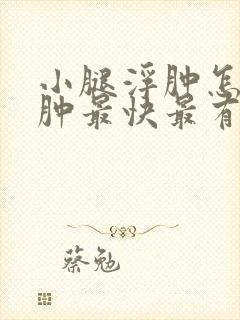 小腿浮肿怎
肿最快最有
蔡勉